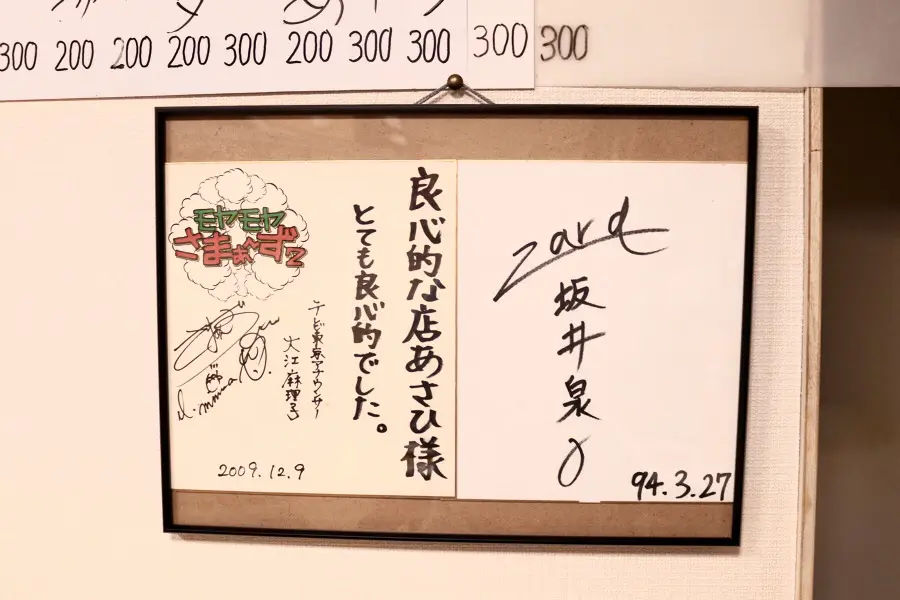 300 200 200 200 300 200 300 300 300 300
モヤモヤ
さまぁ~ず2
良心的な店あさひ様
とても良心的でした。
テレビ東京アナウンサー
大江麻理子
2009.12.9
zard
坂井泉水
94.3.27